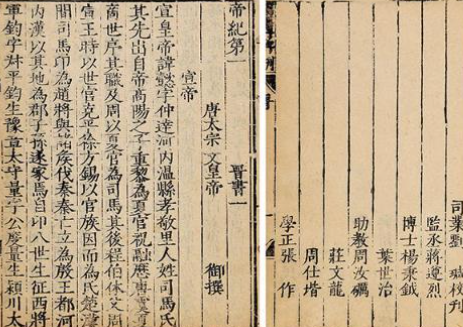 帝紀第一 晉書一
唐太宗文皇帝 御撰
宣帝
宣皇帝諱懿字仲達河内溫縣孝敬里人姓司馬氏
其先出自帝高陽之子重黎為夏官祝融歷唐虞夏
商世序其職及周以夏官為司馬其後程伯休父周
宣王時以世官克平徐方錫以官族因而為氏楚漢
間司馬卬為趙將與諸侯伐秦秦亡立為殷王都河
内漢以其地為郡子孫遂家焉自卬八世生征西將
軍鈞字叔平鈞生豫章太守量字公度量生潁川太
司業 校刊
監丞蔣遵烈
博士楊秉鉞
葉世治
助教周汝礪
莊文龍
周仕堦
學正張 作